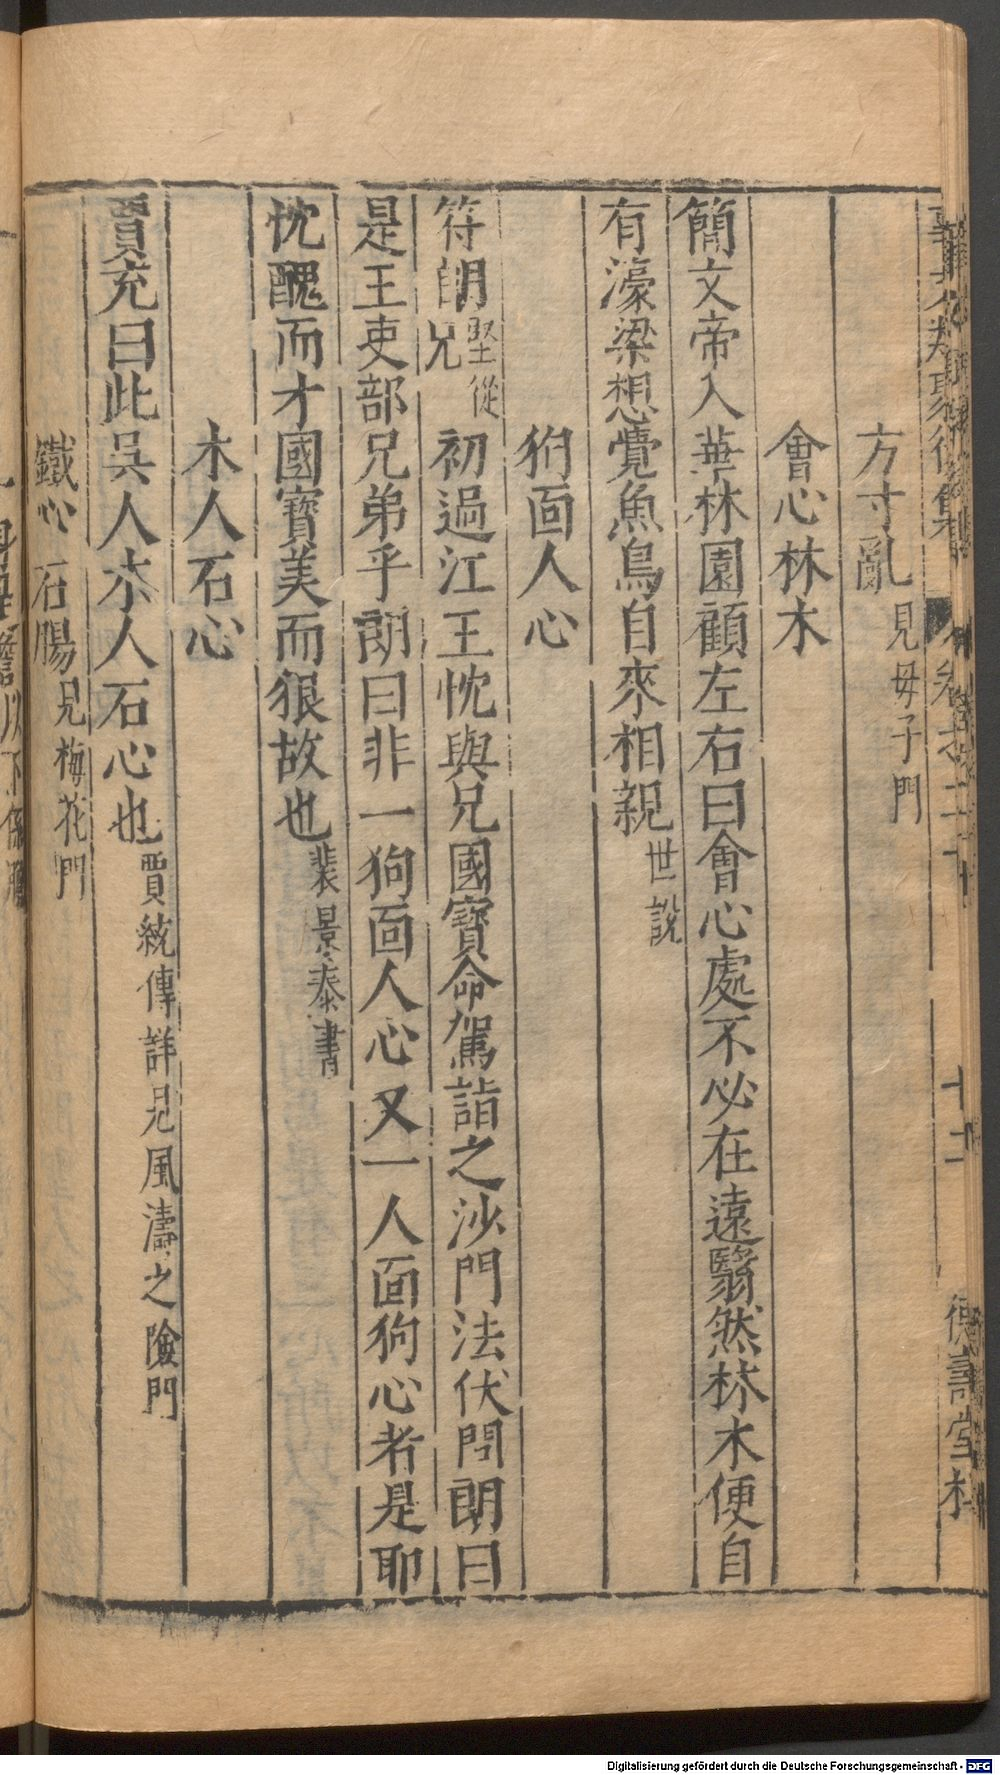 方寸亂見母子門
會心林木
簡文帝入華林園顧左右曰會心處不必在遠翳然林木便自
有濠梁想覺魚鳥自來相親世說
狥面人心
符朗堅從兄初過江王忱與兄國寶命駕詣之沙門法伏問朗曰
是王吏部兄弟乎朗曰非一狗面人心又一人面狗心者是耶
忱醜而才國寶美而狠故也裴景泰書
木人石心
賈充曰此吳人木人石心也賈統傳詳見風濤之險門
鐵心石腸見梅花門
Digitalisierung gefördert durch die Deutsche Forschungsgemeinschaft - DFG